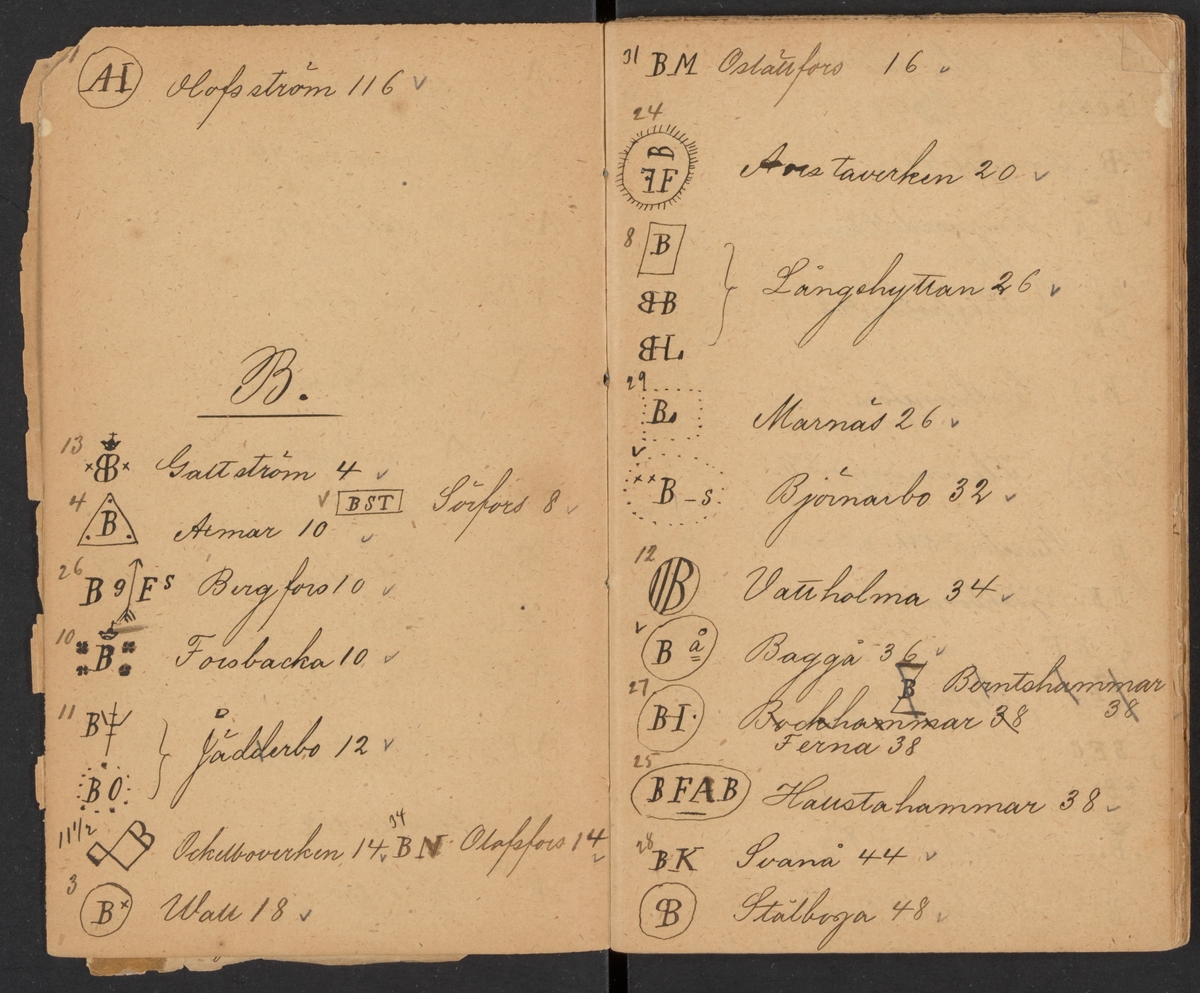 AI Olofsström 116
B.
13 B Gattström 4
BST Sörfors 8
4 B Armar 10
26 B 9 F s Bergfors 10
10 B Forsbacka 10
11 B Jädderbo 12
B O
11 1/2 B Ockelboverken 14 34 BN Olofsfors 14
3 B x Watt 18
31 BM Oslättfors 16
24
B FF Avestaverken 20
8 B
BB Långshyttan 26
BHL
29
B. Marnäs 26
xx B - s. Björnarbo 32
12
B Vattholma 34
B å Baggå 36
B Berntshammar 38
27
BI. Bockhammar 38
Ferna 38
25
BFAB Haustahammar 38
28 BK Svanå 44
B Stålboga 48